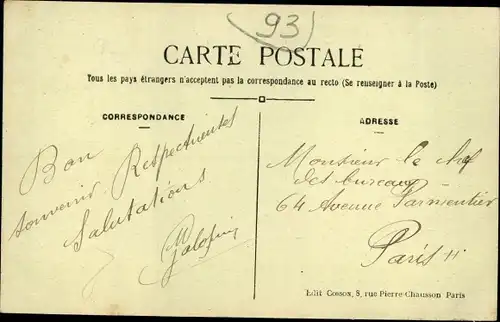 93
CARTE POSTALE
Tous les pays étrangers n'acceptent pas la correspondance au recto (Se renseigner à la Poste)
CORRESPONDANCE
Bon
souvenir. Respectueuses
Salutations
ADRESSE
Monsieur le chef
des bureaux
64 Avenue Parmentier
Paris 11
Edit Cosson, 8, rue Pierre-Chausson Paris